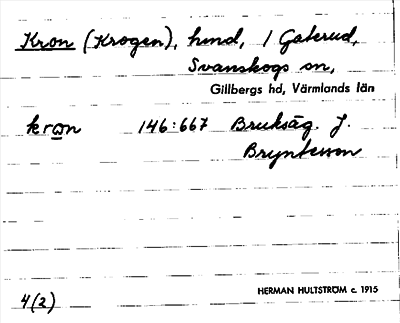 Kron (Krogen), hmd, / Gaterud,
Svanskogs sn,
Gillbergs hd, Värmlands län
kron 146:667 Bruksäg. J.
Bryntesson
4(2)
HERMAN HULTSTRÖM c. 1915